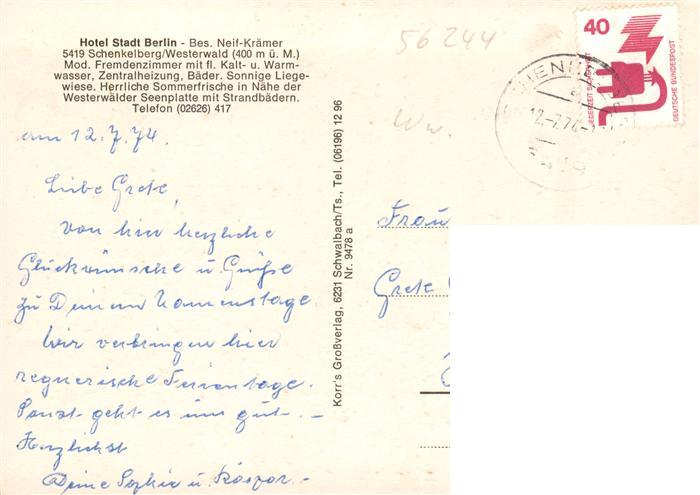 Hotel Stadt Berlin - Bes. Neif-Krämer
5419 Schenkelberg/Westerwald (400 m ü. M.)
Mod. Fremdenzimmer mit fl. Kalt- u. Warm-
wasser, Zentralheizung, Bäder. Sonnige Liege-
wiese. Herrliche Sommerfrische in Nähe der
Westerwälder Seenplatte mit Strandbädern.
Telefon (02626) 417
am 12.7.74.
Liebe Grete,
von hier herzliche
Glückwünsche u. Grüße
zu Deinem Namenstage.
Wir verbringen hier
regnerische Ferientage.
Sonst geht es uns gut. -
Herzlichst
Deine Sophie u. Kaspar -
Korr's Großverlag, 6231 Schwalbach/Ts., Tel. (06196) 12 96
Nr. 9478 a
56244
Ww.
40
JEDERZEIT SICHERHEIT
DEUTSCHE BUNDESPOST
12.-7.74
5419
Frau
Grete